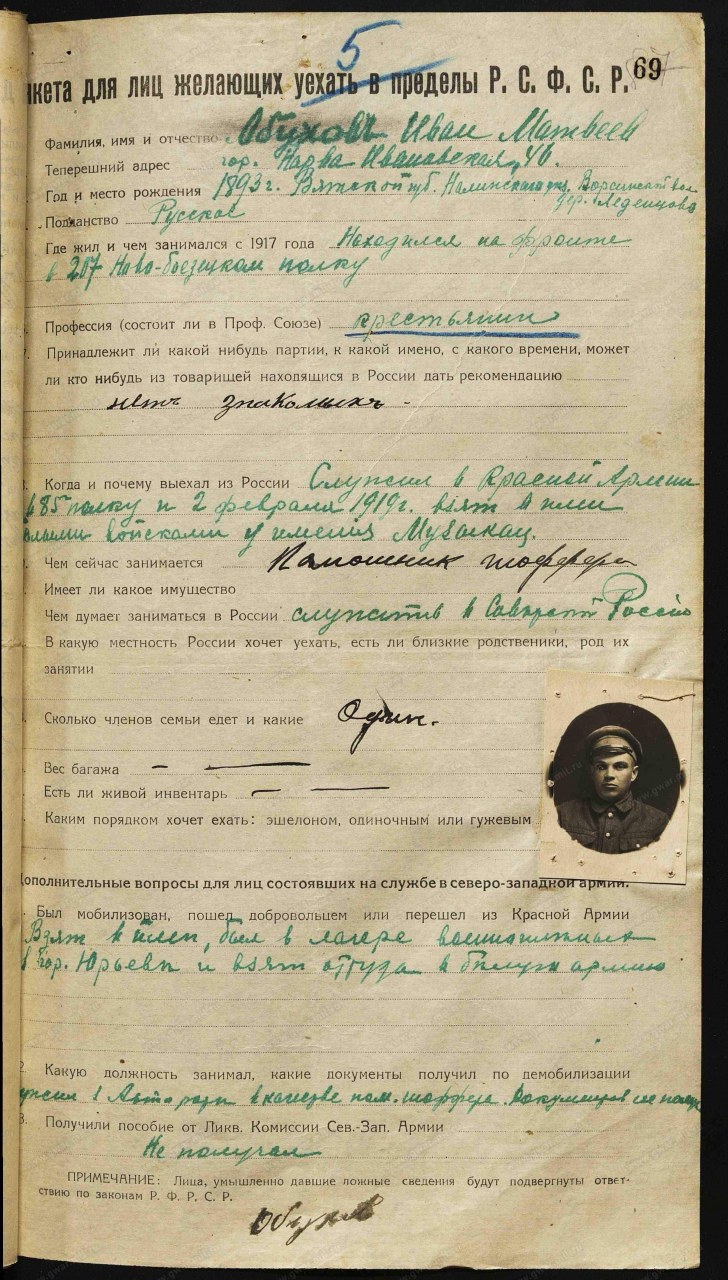 5
69
нкета для лиц желающих уехать в пределы Р. С. Ф. С. Р.
Фамилия, имя и отчество Обуховъ Иван Матвеев
Теперешний адрес гор. Нарва Ивановская, 40.
Год и место рождения 1893 г. Вятской губ. Нолинского уезд.
дер. Леденцово
Подданство Русское
Где жил и чем занимался с 1917 года Находился на фронте
в 207 Ново-боезцком полку
Профессия (состоит ли в Проф. Союзе) крестьянин
Принадлежит ли какой нибудь партии, к какой имено, с какого времени, может
ли кто нибудь из товарищей находящися в России дать рекомендацию
нетъ знакомыхъ -
Когда и почему выехал из России Служил в Красной Армии
в 85 полку и 2 февраля 1919 г. взят в плен
белыми войсками у имения
Чем сейчас занимается Памошник шоффера
Имеет ли какое имущество
Чем думает заниматься в России служить в России
В какую местность России хочет уехать, есть ли близкие родственики, род их
занятии
Сколько членов семьи едет и какие Один.
Вес багажа — —
Есть ли живой инвентарь — —
Каким порядком хочет ехать: эшелоном, одиночным или гужевым
ополнительные вопросы для лиц состоявших на службе в северо-западной армии.
Был мобилизован, пошел добровольцем или перешел из Красной Армии
Взят в плен, был в лагере военнопленных
в гор. Юрьеве и взят оттуда в белую армию
2 Какую должность занимал, какие документы получил по демобилизации
служил в Авто роте в качестве пом. шоффера. Документов не получ
3. Получили пособие от Ликв. Комиссии Сев.-Зап. Армии
Не получал
ПРИМЕЧАНИЕ: Лица, умышленно давшие ложные сведения будут подвергнуты ответ-
ствию по законам Р. Ф. Р. С. Р.
Обухов